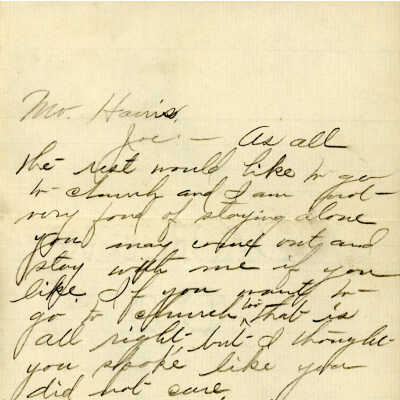 Mr. Harris,
Joe:— As all
the rest would like to go
to church and I am not
very fond of staying alone
you may come out and
stay with me if you
like. If you want to
go to church, that is
all right, but I thought
you spoke like you
did not care